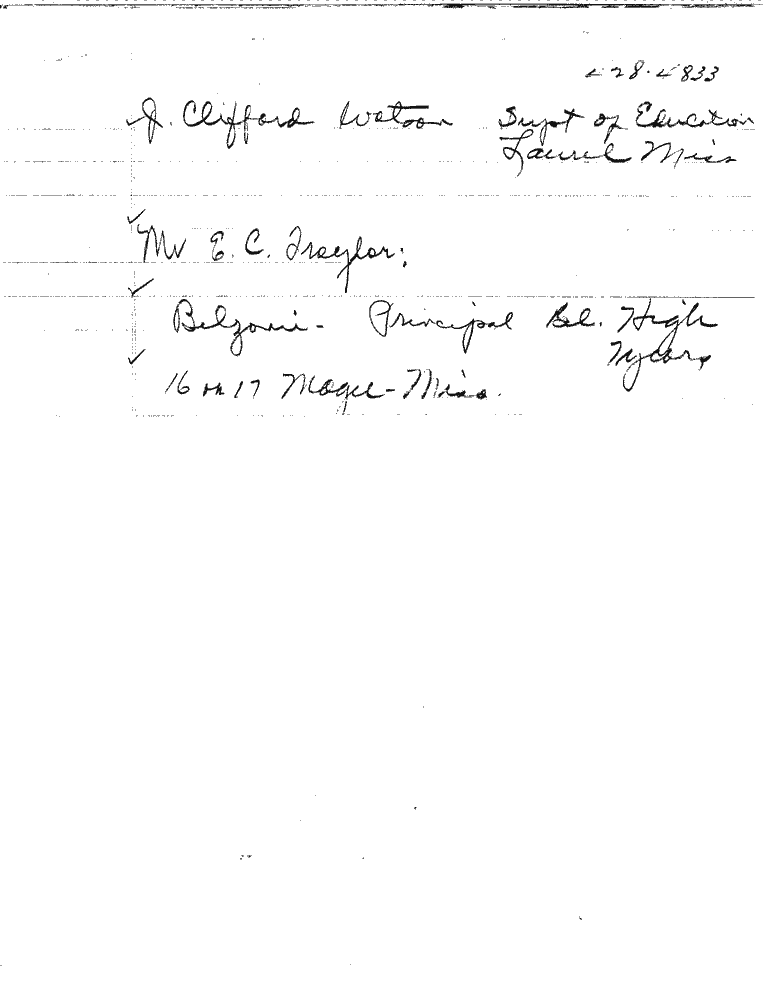 428-4833
J. Clifford Watson Supt of Education
Laurel Miss
Mr E. C. Traylor;
Belzoni - Principal Bel. High
7 years
16 or 17 Magee - Miss.